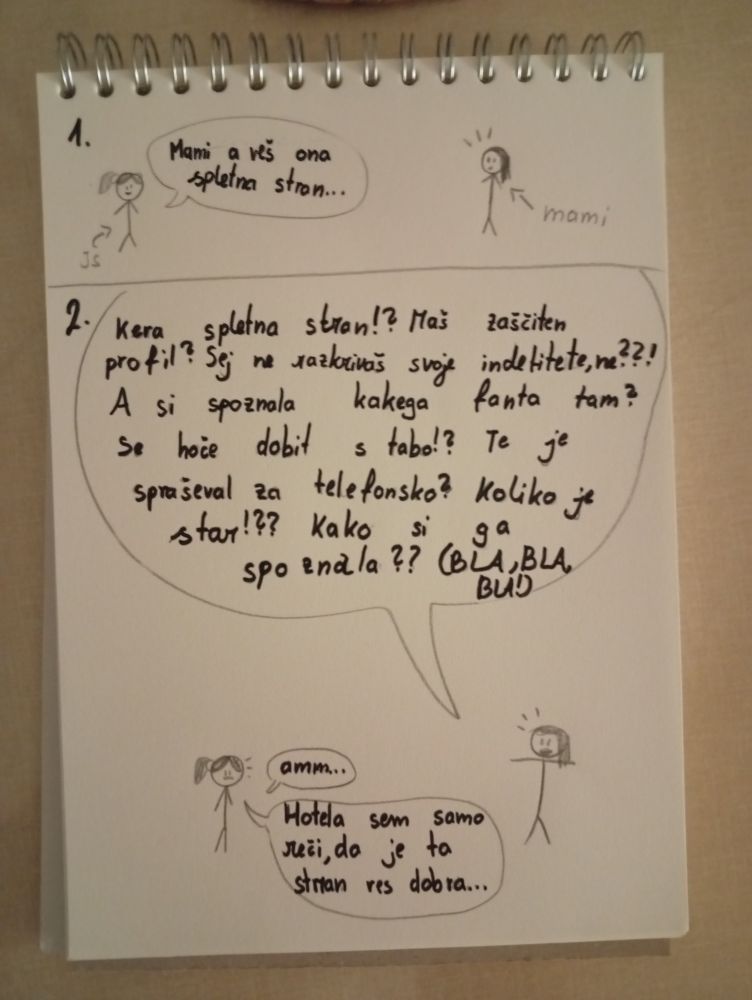 1.
Mami a veš ona
spletna stran...
mami
Js
2.
Kera spletna stran!? Maš zaščiten
profil? Sej ne razkrivaš svoje indetitete, ne??!
A si spoznala kakega fanta tam?
Se hoče dobit s tabo!? Te je
spraševal za telefonsko? Koliko je
star!?? Kako si ga
spoznala?? (BLA, BLA,
BLA!)
amm...
Hotela sem samo
reči, da je ta
stran res dobra...